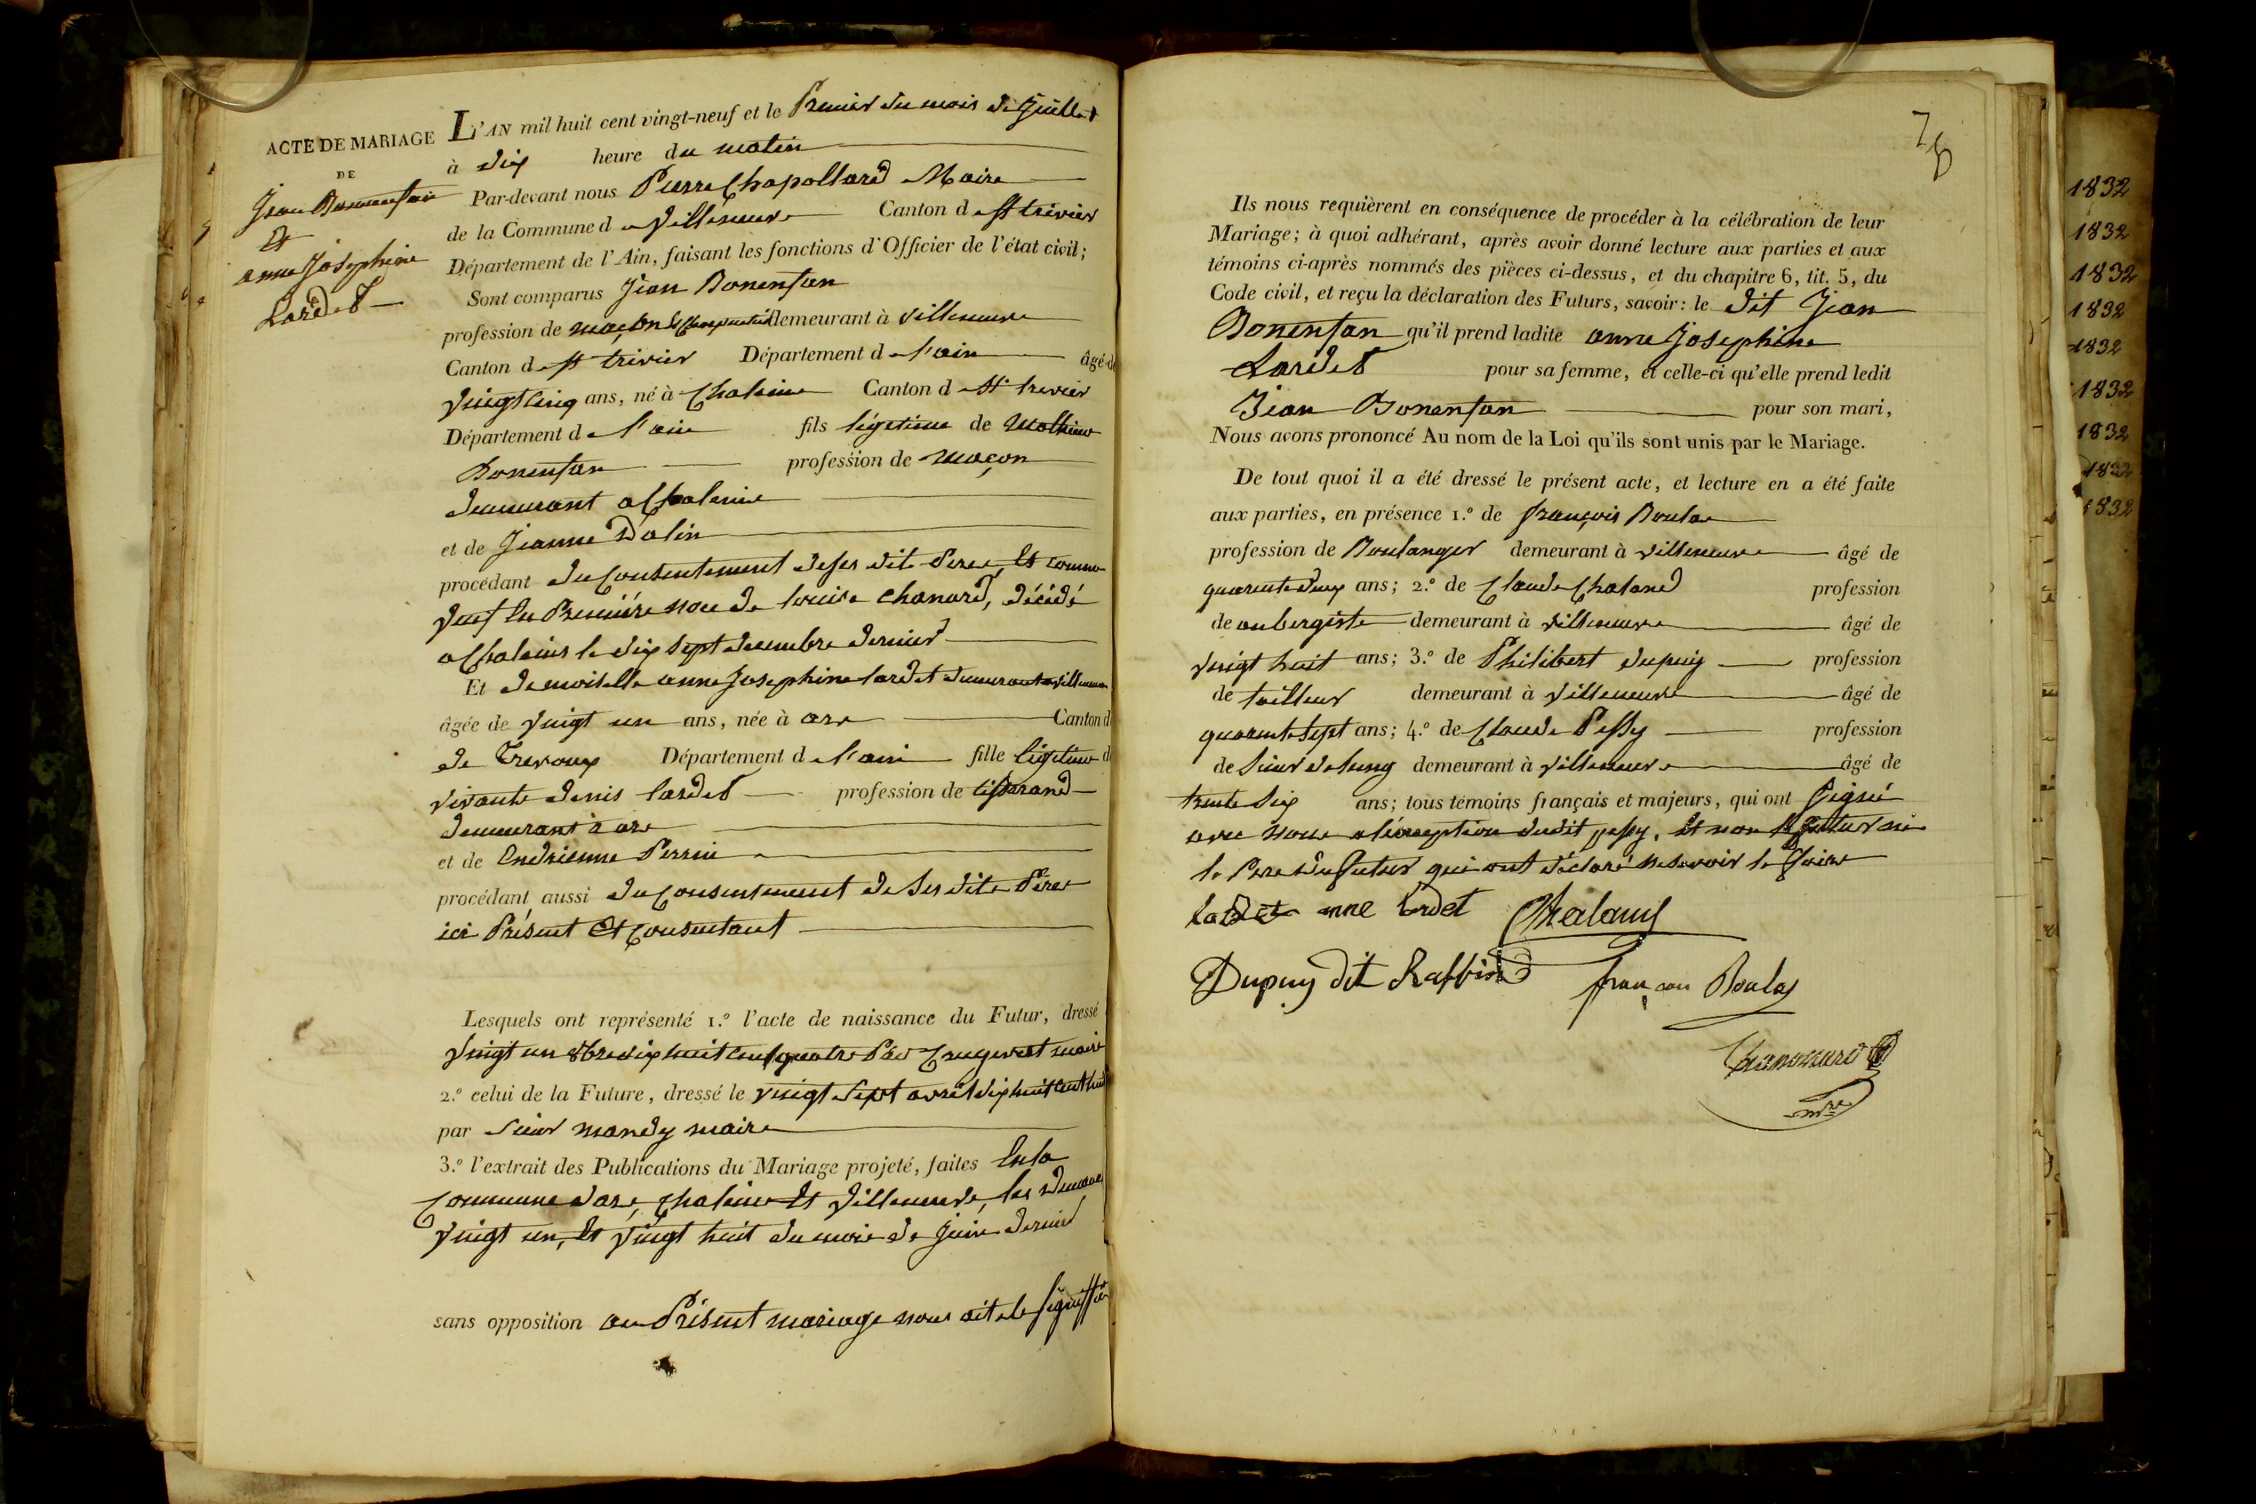 ACTE DE MARIAGE
DE
Jean Bonnenfan
Et
anne Josephine
Lardet
L'AN mil huit cent vingt-neuf et le Premier du mois de Juillet
à dix heure du matin
Par-devant nous Pierre Chapollard Maire
de la Commune de villeneuve Canton de St trivier
Département de l'Ain, faisant les fonctions d'Officier de l'état civil;
Sont comparus Jean Bonenfan
profession de maçon demeurant à villeneuve
Canton de St trivier Département de l'ain âgé de
vingt cinq ans, né à Chaleins Canton de St trivier
Département de l'ain fils légitime de Mathieu
Bonenfan profession de maçon
demeurant a Chaleins
et de Jeanne Dalin
procédant du Consentement de ses dits Peres, Et comme
veuf En Premiére nou de louise chanard, décédé
a Chaleins le dix sept decembre dernier
Et demoiselle anne Josephine lardet demeurant a villeneuve
âgée de vingt un ans, née à ars Canton d
de Trevoux Département de l'ain fille légitime d
vivante denis lardet profession de tisserand
demeurant à ars
et de Endrienne Perrin
procédant aussi du Consentement de ses dits Pére
ici Présent Et Consentant
Lesquels ont représenté 1.º l'acte de naissance du Futur, dressé
vingt un 8bre dix huit cent quatre Par maire
2.º celui de la Future, dressé le vingt sept avril dix huit cent huit
par Sieur mandy maire
3.º l'extrait des Publications du Mariage projeté, faites En la
Commune d'ars, Chaleins Et Villeneuve, les
vingt un, Et vingt huit du mois de Juin dernier
sans opposition au Présent mariage nous ait ete signiffié
78
Ils nous requièrent en conséquence de procéder à la célébration de leur
Mariage; à quoi adhérant, après avoir donné lecture aux parties et aux
témoins ci-après nommés des pièces ci-dessus, et du chapitre 6, tit. 5, du
Code civil, et reçu la déclaration des Futurs, savoir: le dit Jean
Bonenfan qu'il prend ladite anne Josephine
Lardet pour sa femme, et celle-ci qu'elle prend ledit
Jean Bonenfan pour son mari,
Nous avons prononcé Au nom de la Loi qu'ils sont unis par le Mariage.
De tout quoi il a été dressé le présent acte, et lecture en a été faite
aux parties, en présence 1.º de françois Boulas
profession de Boulanger demeurant à villeneuve âgé de
quarente deux ans; 2.º de Claude Chaland profession
de aubergiste demeurant à villeneuve âgé de
vingt huit ans; 3.º de Philibert dupuy profession
de tailleur demeurant à villeneuve âgé de
quarente sept ans; 4.º de Claude Pessy profession
de Sieur de long demeurant à villeneuve âgé de
trente six ans; tous témoins français et majeurs, qui ont signé
avec nous a l'exception dudit pessy, Et non le futur ni
le Pere du futur qui ont déclaré ne savoir le faire
Lardet anne lardet Chaland
Dupuy dit Raffin françois Boulas
mre
1832
1832
1832
1832
1832
1832
1832
1832
1832